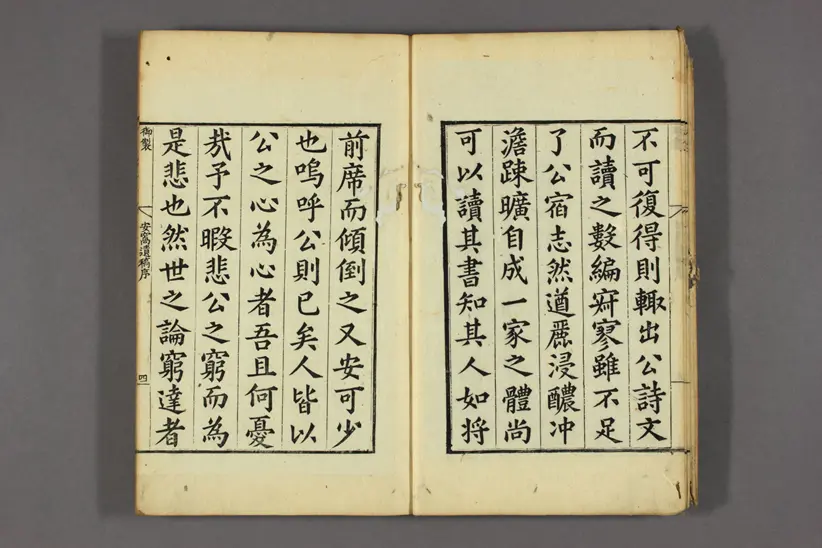 不可復得則輙出公詩文
而讀之數編寂寥雖不足
了公宿志然遒麗浸醲冲
澹踈曠自成一家之體尚
可以讀其書知其人如將
前席而傾倒之又安可少
也嗚呼公則已矣人皆以
公之心為心者吾且何憂
㢤予不暇悲公之窮而為
是悲也然世之論窮達者
御製
安窩遺稿序
四